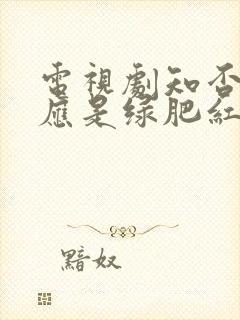 電視劇知否
應是绿肥紅
黯奴